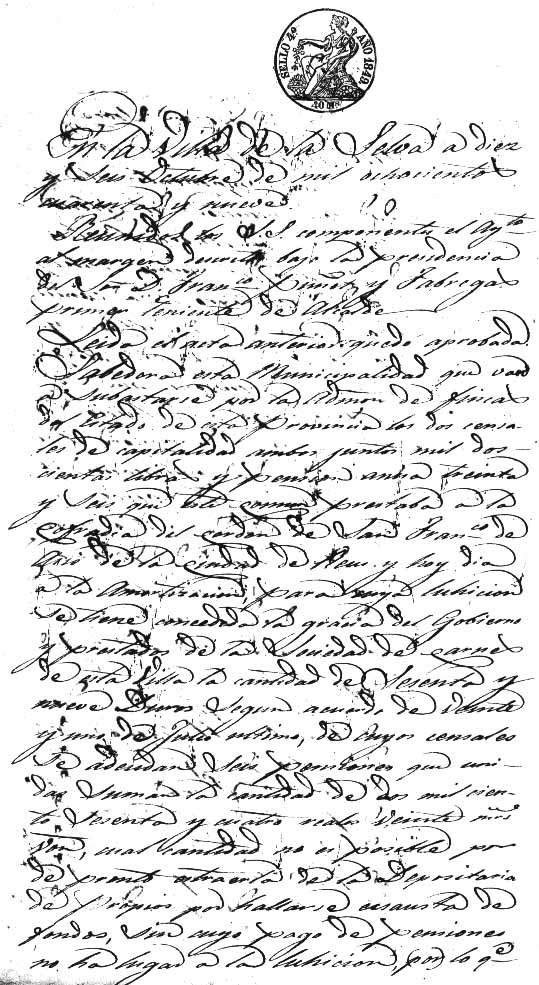 SELLO 4º AÑO 1849.
40 Mˢ
En la Villa de la Selva a diez
y seis Octubre de mil ochocientos
cuarenta y nueve
Reunidos los S.S. componentes el Aytº
al margen descrito bajo la presidencia
del Sor. D. Franᶜº y Fabregas
primer teniente de Alcalde
Leida el acta anterior quedó aprobada
Sabedora esta Municipalidad que van
a subastarse por la Admon de fincas
del Estado de esta Provincia los dos censa-
les de capitalidad ambos juntos mil dos-
cientas libras y pension anua treinta
y seis que este comun prestaba a la
cofradia del cordon de San Franᶜº de
Asis de la Ciudad de Reus y hoy dia
a la Amortizacion para cuya luhicion
se tiene concedida la gracia del Gobierno
y prestados de la Sociedad de Carnes
de esta Villa la cantidad de Sesenta y
nueve Duros segun acuerdo de veinte
y uno de Julio ultimo, de cuyos censales
se adeudan seis pensiones que uni-
das suman la cantidad de dos mil cien-
to sesenta y cuatro reales veinte mrˢ
Von, cual cantidad no es posible por
de pronto estraerla de la Depositaria
de Propios por hallarse exausta de
fondos, sin cuyo pago de pensiones
no ha lugar a la luhicion, por lo qᵉ